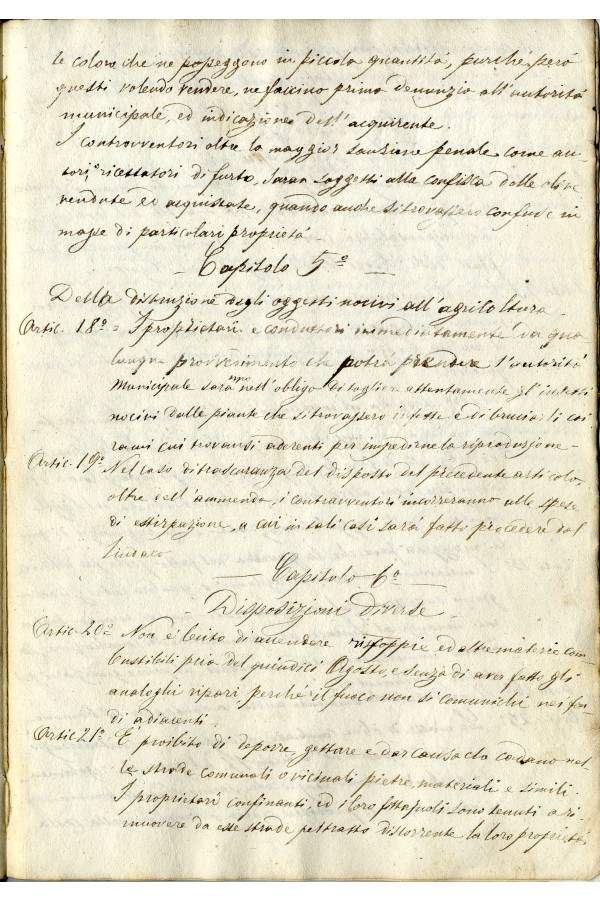 le coloro che ne posseggono in piccola quantità, purché però
questi volendo vendere, ne faccino prima denunzia all'autorità
municipale, ed indicazione dell'acquirente.
I contravventori oltre la maggior sanzione penale come au-
tori, o ricettatori di furto, saran soggetti alla confisca delle olive
vendute ed acquistate, quando anche si trovassero confuse in
masse di particolari proprietà.
— Capitolo 5º —
Della distruzione degli oggetti nocivi all'agricoltura.
Artic. 18º = I proprietari e conduttori immediatamente da qua-
lunque provvedimento che potrà prendere l'autorità
Municipale saranno nell'obligo di tagliare attentamente gl'insetti
nocivi dalle piante che si trovassero infette e di bruciarli coi
rami cui trovansi aderenti per impedirne la riproduzione —
Artic. 19º Nel caso di trascuranza del disposto del precedente articolo,
oltre dell'ammenda, i contravventori incorreranno alle spese
di estirpazione, a cui in tali casi sarà fatto procedere dal
Sindaco
— Capitolo 6º —
— Disposizioni diverse —
Artic. 20º Non è lecito di accendere ristoppie ed altre materie com-
bustibili pria del quindici Agosto, e senza di aver fatto gli
analoghi ripari perché il fuoco non si comunichi nei fon-
di adiacenti.
Artic. 21º È proibito di deporre, gettare e dar causa che cadano nel-
le strade comunali o vicinali pietre, materiali e simili.
I proprietari confinanti, ed i loro fittajuoli sono tenuti a ri-
muovere da esse strade pel tratto discorrente la loro proprietà,